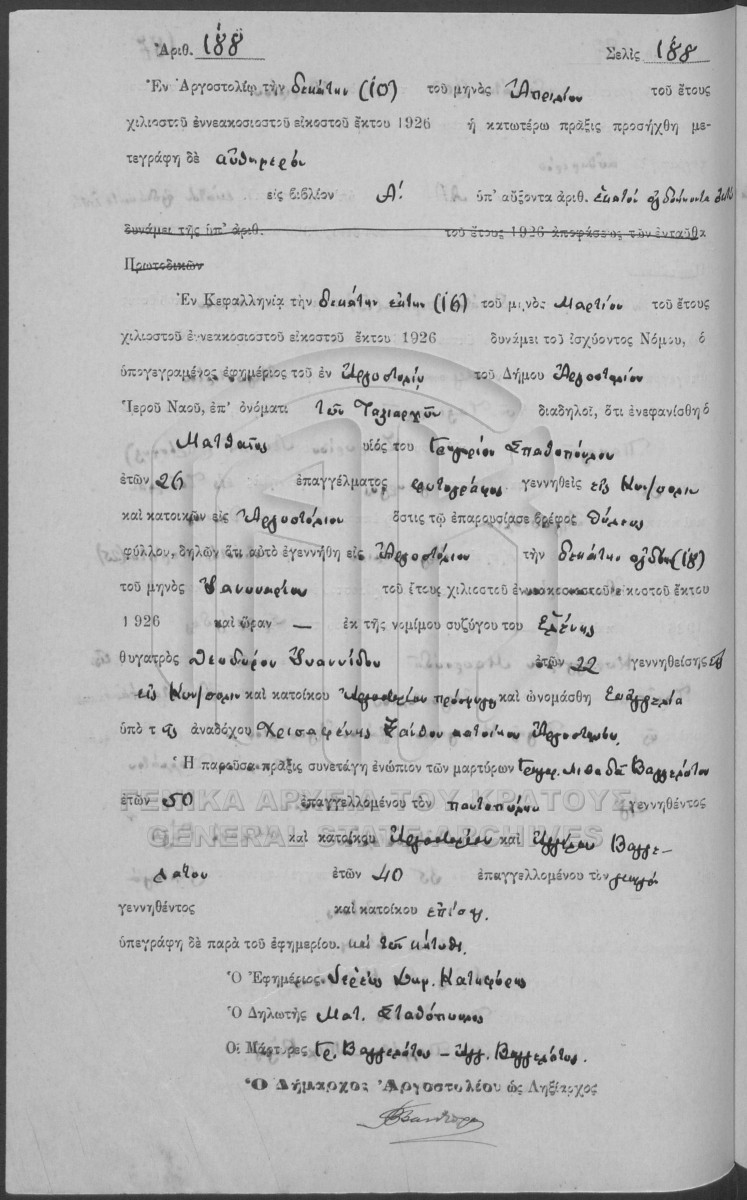 Ἀριθ. 188 Σελὶς 188
Ἐν Ἀργοστολίῳ τὴν δεκάτην (10) τοῦ μηνὸς Ἀπριλίου τοῦ ἔτους
χιλιοστοῦ ἐννεακοσιοστοῦ εἰκοστοῦ ἕκτου 1926 ἡ κατωτέρω πρᾶξις προσήχθη με-
τεγράφη δὲ αὐθημερὸν
εἰς βιβλίον Α'. ὑπ' αὔξοντα ἀριθ. ἑκατὸν ὀγδοήκοντα ὀκτὼ
δυνάμει τῆς ὑπ' ἀριθ. τοῦ ἔτους 1926 ἀποφάσεως τῶν ἐνταῦθα
Πρωτοδικῶν
Ἐν Κεφαλληνίᾳ τὴν δεκάτην ἕκτην (16) τοῦ μηνὸς Μαρτίου τοῦ ἔτους
χιλιοστοῦ ἐννεακοσιοστοῦ εἰκοστοῦ ἕκτου 1926 δυνάμει τοῦ ἰσχύοντος Νόμου, ὁ
ὑπογεγραμένος ἐφημέριος τοῦ ἐν Ἀργοστολίῳ τοῦ Δήμου Ἀργοστολίου
Ἱεροῦ Ναοῦ, ἐπ' ὀνόματι τῶν Ταξιαρχῶν διαδηλοῖ, ὅτι ἐνεφανίσθη ὁ
Ματθαῖος υἱός του Γρηγορίου Σταθοπούλου
ἐτῶν 26 ἐπαγγέλματος φωτογράφος γεννηθεὶς εἰς Κων/πολιν
καὶ κατοικῶν εἰς Ἀργοστόλιον ὅστις τῷ ἐπαρουσίασε βρέφος θήλεως
φύλλου, δηλῶν ὅτι αὐτὸ ἐγεννήθη εἰς Ἀργοστόλιον τὴν δεκάτην ὀγδόην (18)
τοῦ μηνὸς Ἰανουαρίου τοῦ ἔτους χιλιοστοῦ ἐννεακοσιοστοῦ εἰκοστοῦ ἕκτου
1926 καὶ ὥραν — ἐκ τῆς νομίμου συζύγου του Ἑλένης
θυγατρὸς Θεοδώρου Ἰωαννίδου ἐτῶν 22 γεννηθείσης
εἰς Κων/πολιν καὶ κατοίκου Ἀργοστολίου πρόσφυγος καὶ ὠνομάσθη Εὐαγγελία
ὑπὸ τῆς ἀναδόχου Χρισαφένης κατοίκου Ἀργοστολίου.
Ἡ παροῦσα πρᾶξις συνετάγη ἐνώπιον τῶν μαρτύρων Βαγγελάτου
ἐτῶν 50 ἐπαγγελλομένου τὸν παντοπώλην γεννηθέντος
καὶ κατοίκου Ἀργοστολίου καὶ Ἀγγέλου Βαγγε-
λάτου ἐτῶν 40 ἐπαγγελλομένου τὸν
γεννηθέντος καὶ κατοίκου ἐπίσης.
ὑπεγράφη δὲ παρὰ τοῦ ἐφημερίου. καὶ τῶν κάτωθι.
Ὁ Ἐφημέριος Ἱερεὺς Δημ. Κατηφόρης
Ὁ Δηλωτὴς Ματ. Σταθόπουλος
Οἱ Μάρτυρες Γρ. Βαγγελάτος – Ἀγγ. Βαγγελάτος.
Ὁ Δήμαρχος Ἀργοστολίου ὡς Ληξίαρχος
ΓΕΝΙΚΑ ΑΡΧΕΙΑ ΤΟΥ ΚΡΑΤΟΥΣ
GENERAL STATE ARCHIVES